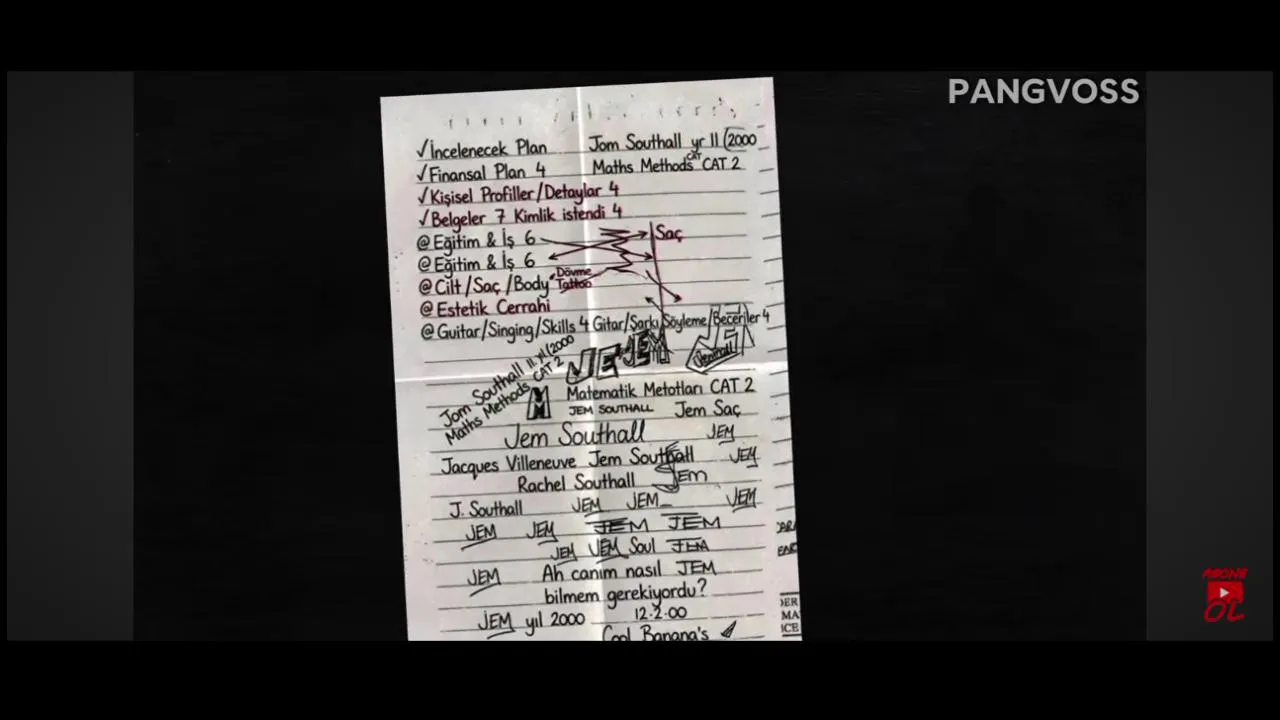 PANGVOSS
✓İncelenecek Plan Jom Southall yr II (2000
✓Finansal Plan 4 Maths Methods CAT CAT 2
✓Kişisel Profiller/Detaylar 4
✓Belgeler 7 Kimlik istendi 4
@Eğitim & İş 6 Saç
@Eğitim & İş 6
@Cilt/Saç/Body Dövme Tattoo
@Estetik Cerrahi
@Guitar/Singing/Skills 4 Gitar/Şarkı Söyleme/Beceriler 4
Jom Southall II yıl (2000
Maths Methods CAT 2
JE JEM
M Matematik Metotları CAT 2
JEM SOUTHALL Jem Saç
Jem Southall JEM
Jacques Villeneuve Jem Southall JEM
Rachel Southall Jem
J. Southall JEM JEM_ JEM
JEM JEM JEM JEM
JEM JEM Soul JEM
JEM Ah canım nasıl JEM
bilmem gerekiyordu?
JEM yıl 2000 12.2.00
Cool Banana's
ABONE
OL